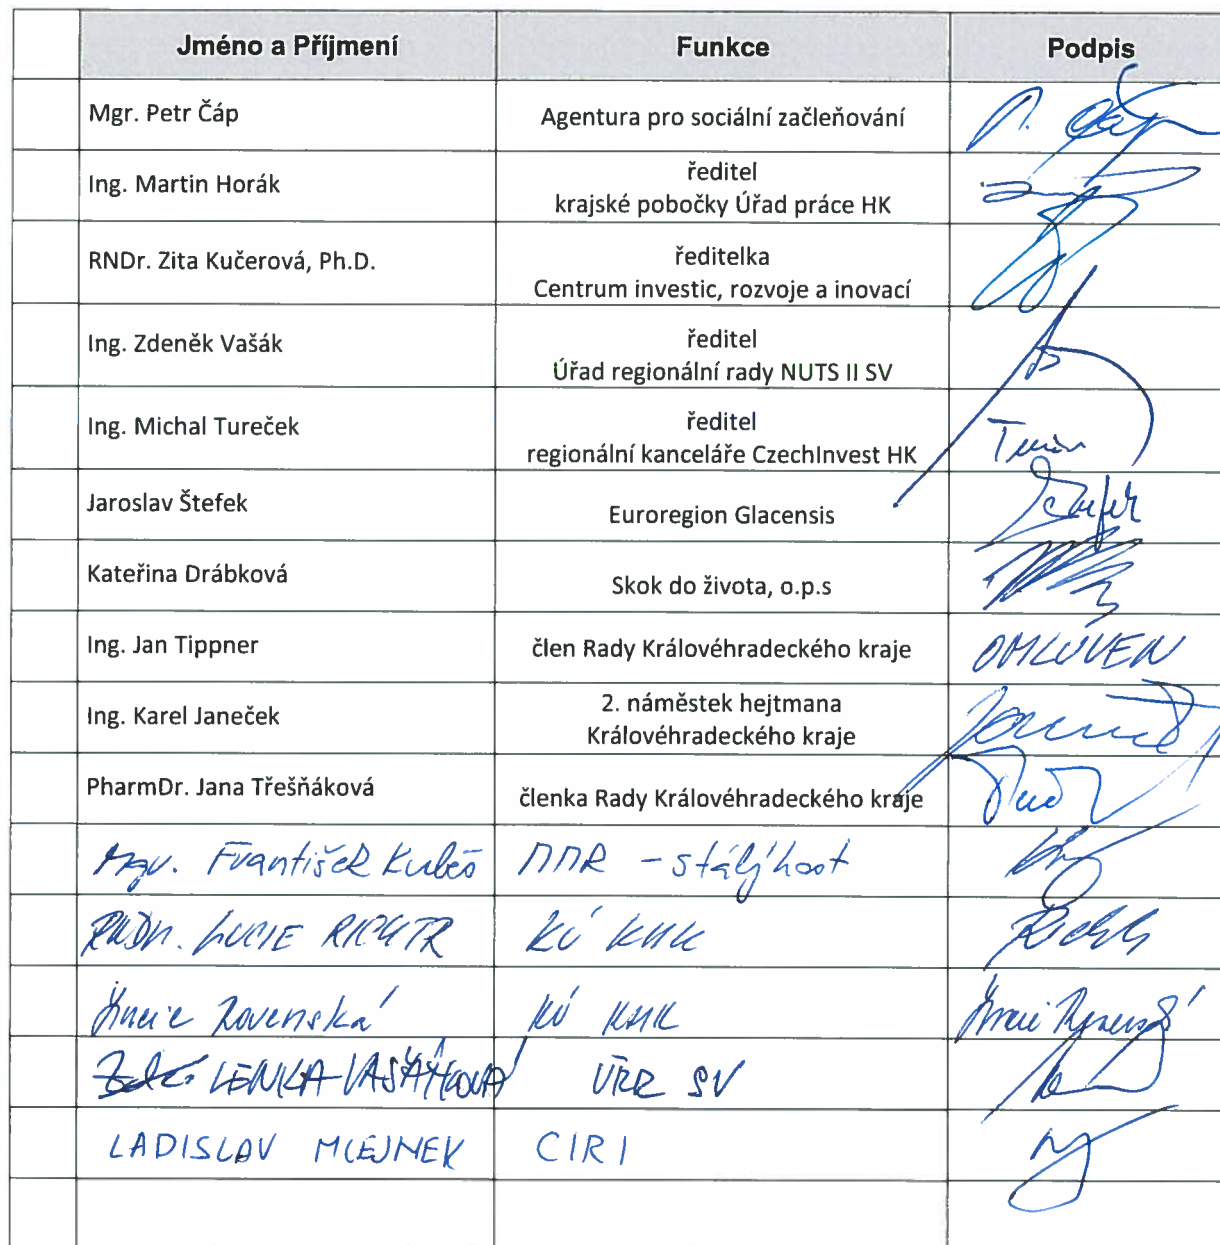 Jméno a Příjmení Funkce Podpis
Mgr. Petr Čáp Agentura pro sociální začleňování
Ing. Martin Horák ředitel
krajské pobočky Úřad práce HK
RNDr. Zita Kučerová, Ph.D. ředitelka
Centrum investic, rozvoje a inovací
Ing. Zdeněk Vašák ředitel
Úřad regionální rady NUTS II SV
Ing. Michal Tureček ředitel
regionální kanceláře CzechInvest HK
Jaroslav Štefek Euroregion Glacensis
Kateřina Drábková Skok do života, o.p.s
Ing. Jan Tippner člen Rady Královéhradeckého kraje OMLUVEN
Ing. Karel Janeček 2. náměstek hejtmana
Královéhradeckého kraje
PharmDr. Jana Třešňáková členka Rady Královéhradeckého kraje
Mgr. František Kubeš MMR - stálý host
RNDr. LUCIE RICHTR KÚ KHK
Rovenská KÚ KHK
LENKA VRR SV
LADISLAV MLEJNEK CIRI